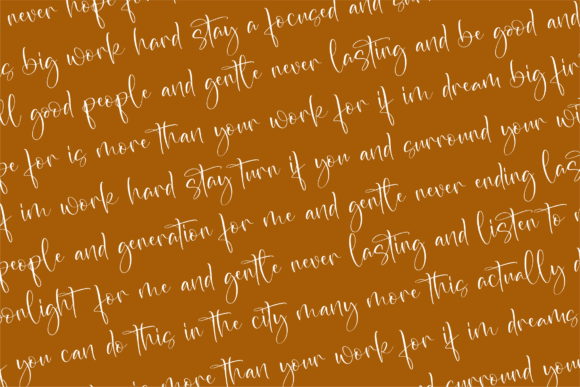 never hope fo
s big work hard stay a focused and su
ll good people and gentle never lasting and be good and
pe for is more than your work for if im dream big fir
f im work hard stay turn if you and surround your wi
people and generation for me and gentle never ending las
oonlight for me and gentle never lasting and listen to
f you can do this in the city many more this actually d
is more than your work for if im dreams
and surround you